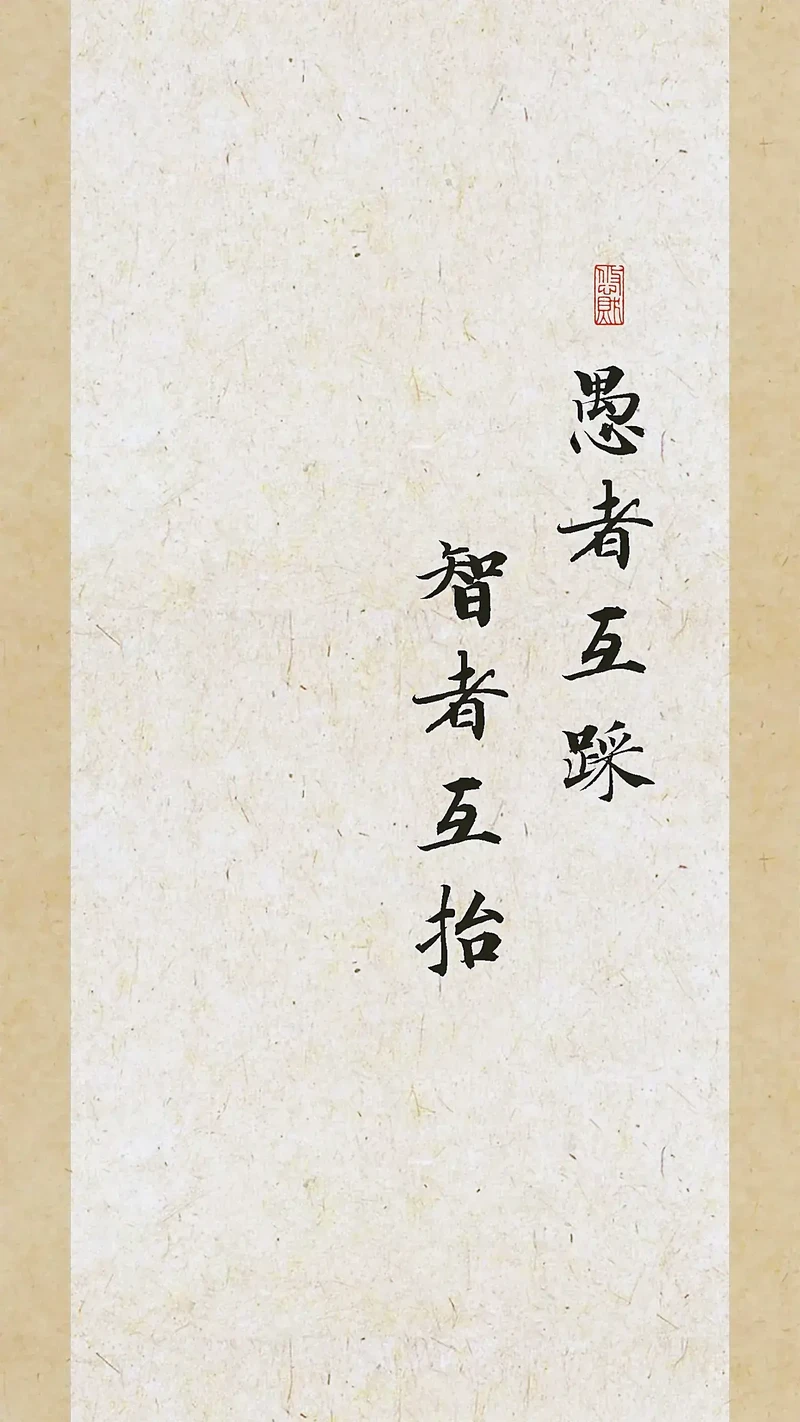 愚者互踩
智者互抬